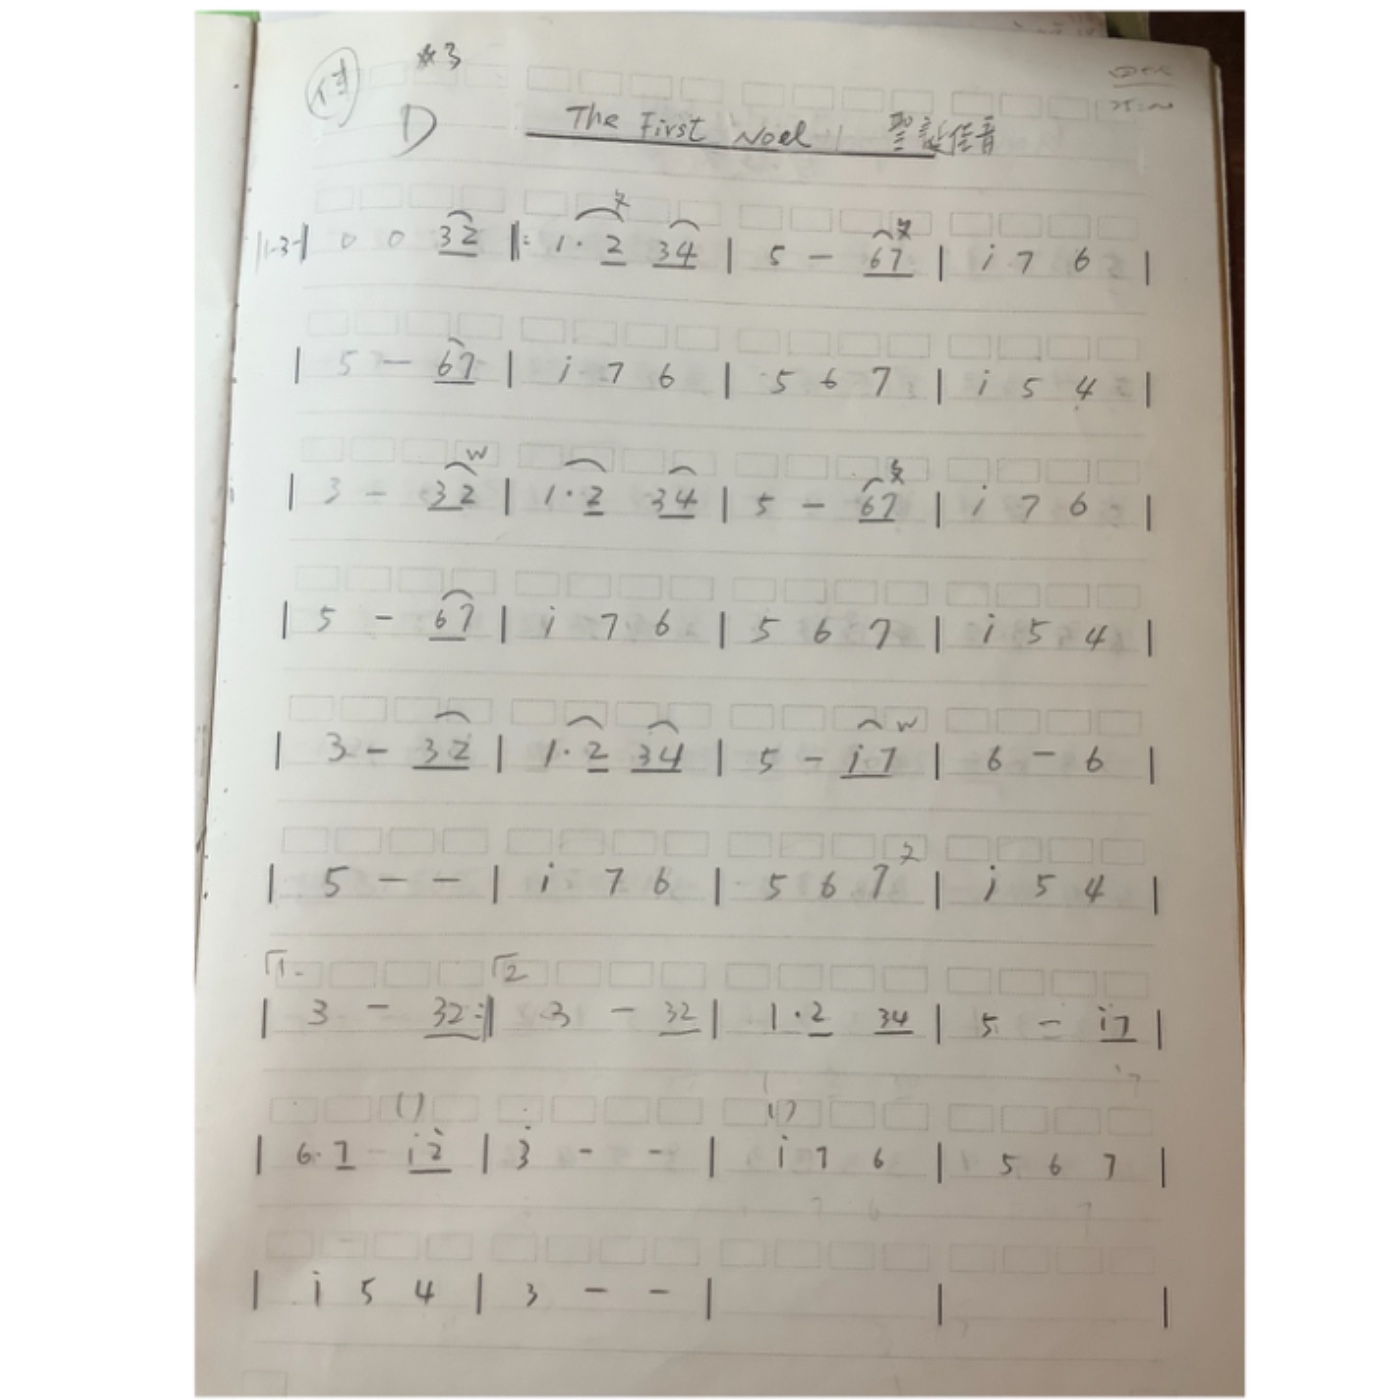 付 #3
D The First Noel 聖誕佳音
|1-3-| 0 0 32 ‖: 1· 2 34 | 5 – 67 | i 7 6 |
| 5 – 67 | i 7 6 | 5 6 7 | i 5 4 |
| 3 – 32 | 1· 2 34 | 5 – 67 | i 7 6 |
| 5 – 67 | i 7 6 | 5 6 7 | i 5 4 |
| 3 – 32 | 1· 2 34 | 5 – i7 | 6 – 6 |
| 5 – – | i 7 6 | 5 6 7 | i 5 4 |
1. 2
| 3 – 32 :‖ 3 – 32 | 1· 2 34 | 5 – i7 |
| 6· 7 – i2̇ | 3̇ – – | i 7 6 | 5 6 7 |
| i 5 4 | 3 – – | | |